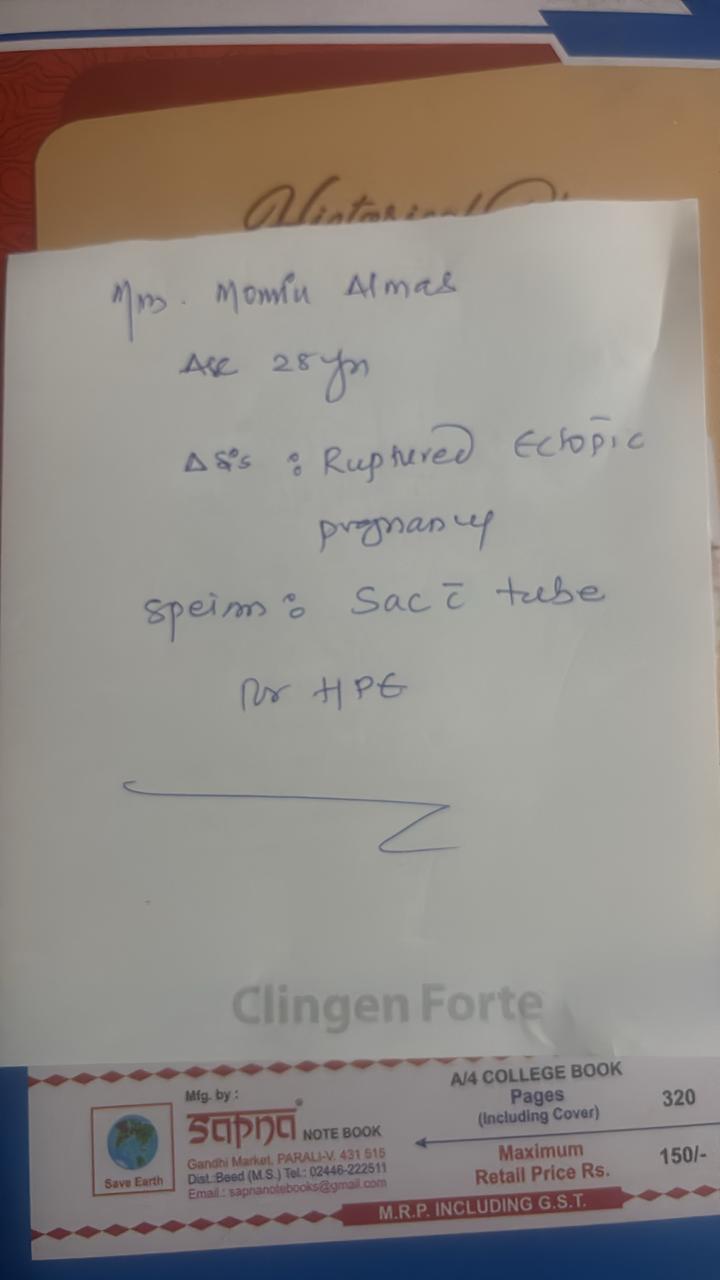 Historical
Mrs. Momin Almas
Age 28 yrs
Δsis : Ruptured Ectopic
pregnancy
Speim : Sac c̄ tube
for HPE
Clingen Forte
A/4 COLLEGE BOOK
Pages 320
(Including Cover)
Maximum
Retail Price Rs. 150/-
M.R.P. INCLUDING G.S.T.
Mfg. by :
sapna® NOTE BOOK
Gandhi Market, PARALI-V. 431 515
Dist.:Beed (M.S.) Tel.: 02446-222511
Email.: sapnanotebooks@gmail.com
Save Earth